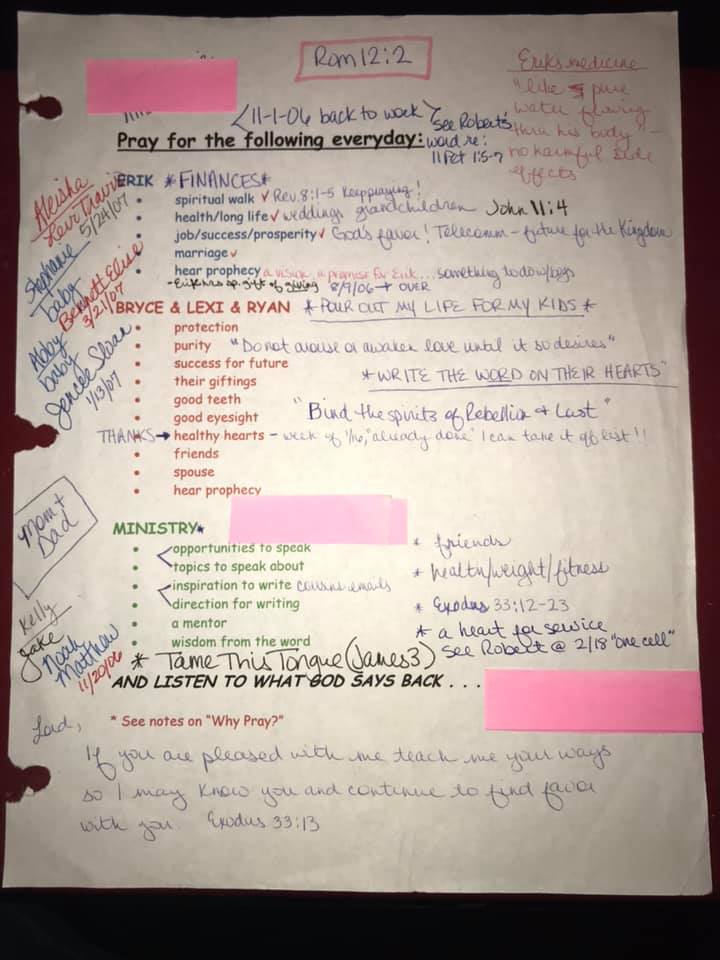 Rom 12:2
Erik's medicine
"like pure
water flowing
thru his body" -
no harmful side
effects
11-1-06 back to work
see Robert's
word re:
II Pet 1:5-7
Pray for the following everyday:
ERIK *FINANCES*
spiritual walk ✓ Rev. 8:1-5 Keep praying!
health/long life ✓ weddings grandchildren John 11:4
job/success/prosperity ✓ God's favor! Telecomm - future for the Kingdom
marriage ✓
hear prophecy a vision, a promise for Erik... something to do w/boys
- Erik has sp. gift of giving 8/9/06 → OVER
Aleisha
Levi Travis
5/24/07
Stephanie
baby
Bennett Elise
3/21/07
Abby
baby
Jencie Sloan
1/13/07
BRYCE & LEXI & RYAN *POUR OUT MY LIFE FOR MY KIDS*
protection
purity "Do not arouse or awaken love until it so desires"
success for future
their giftings *WRITE THE WORD ON THEIR HEARTS"
good teeth
good eyesight "Bind the spirits of Rebellion & Lust"
THANKS → healthy hearts - week of "already done" I can take it off list!!
friends
spouse
hear prophecy
Mom +
Dad
MINISTRY*
opportunities to speak * friends
topics to speak about * health/weight/fitness
inspiration to write emails
direction for writing * Exodus 33:12-23
a mentor * a heart for service
wisdom from the word See Robert @ 2/18 "one cell"
Kelly
Jake
Noah
Matthew
11/20/06
* Tame This Tongue (James 3)
AND LISTEN TO WHAT GOD SAYS BACK . . .
* See notes on "Why Pray?"
Lord,
If you are pleased with me teach me your ways
so I may know you and continue to find favor
with you. Exodus 33:13